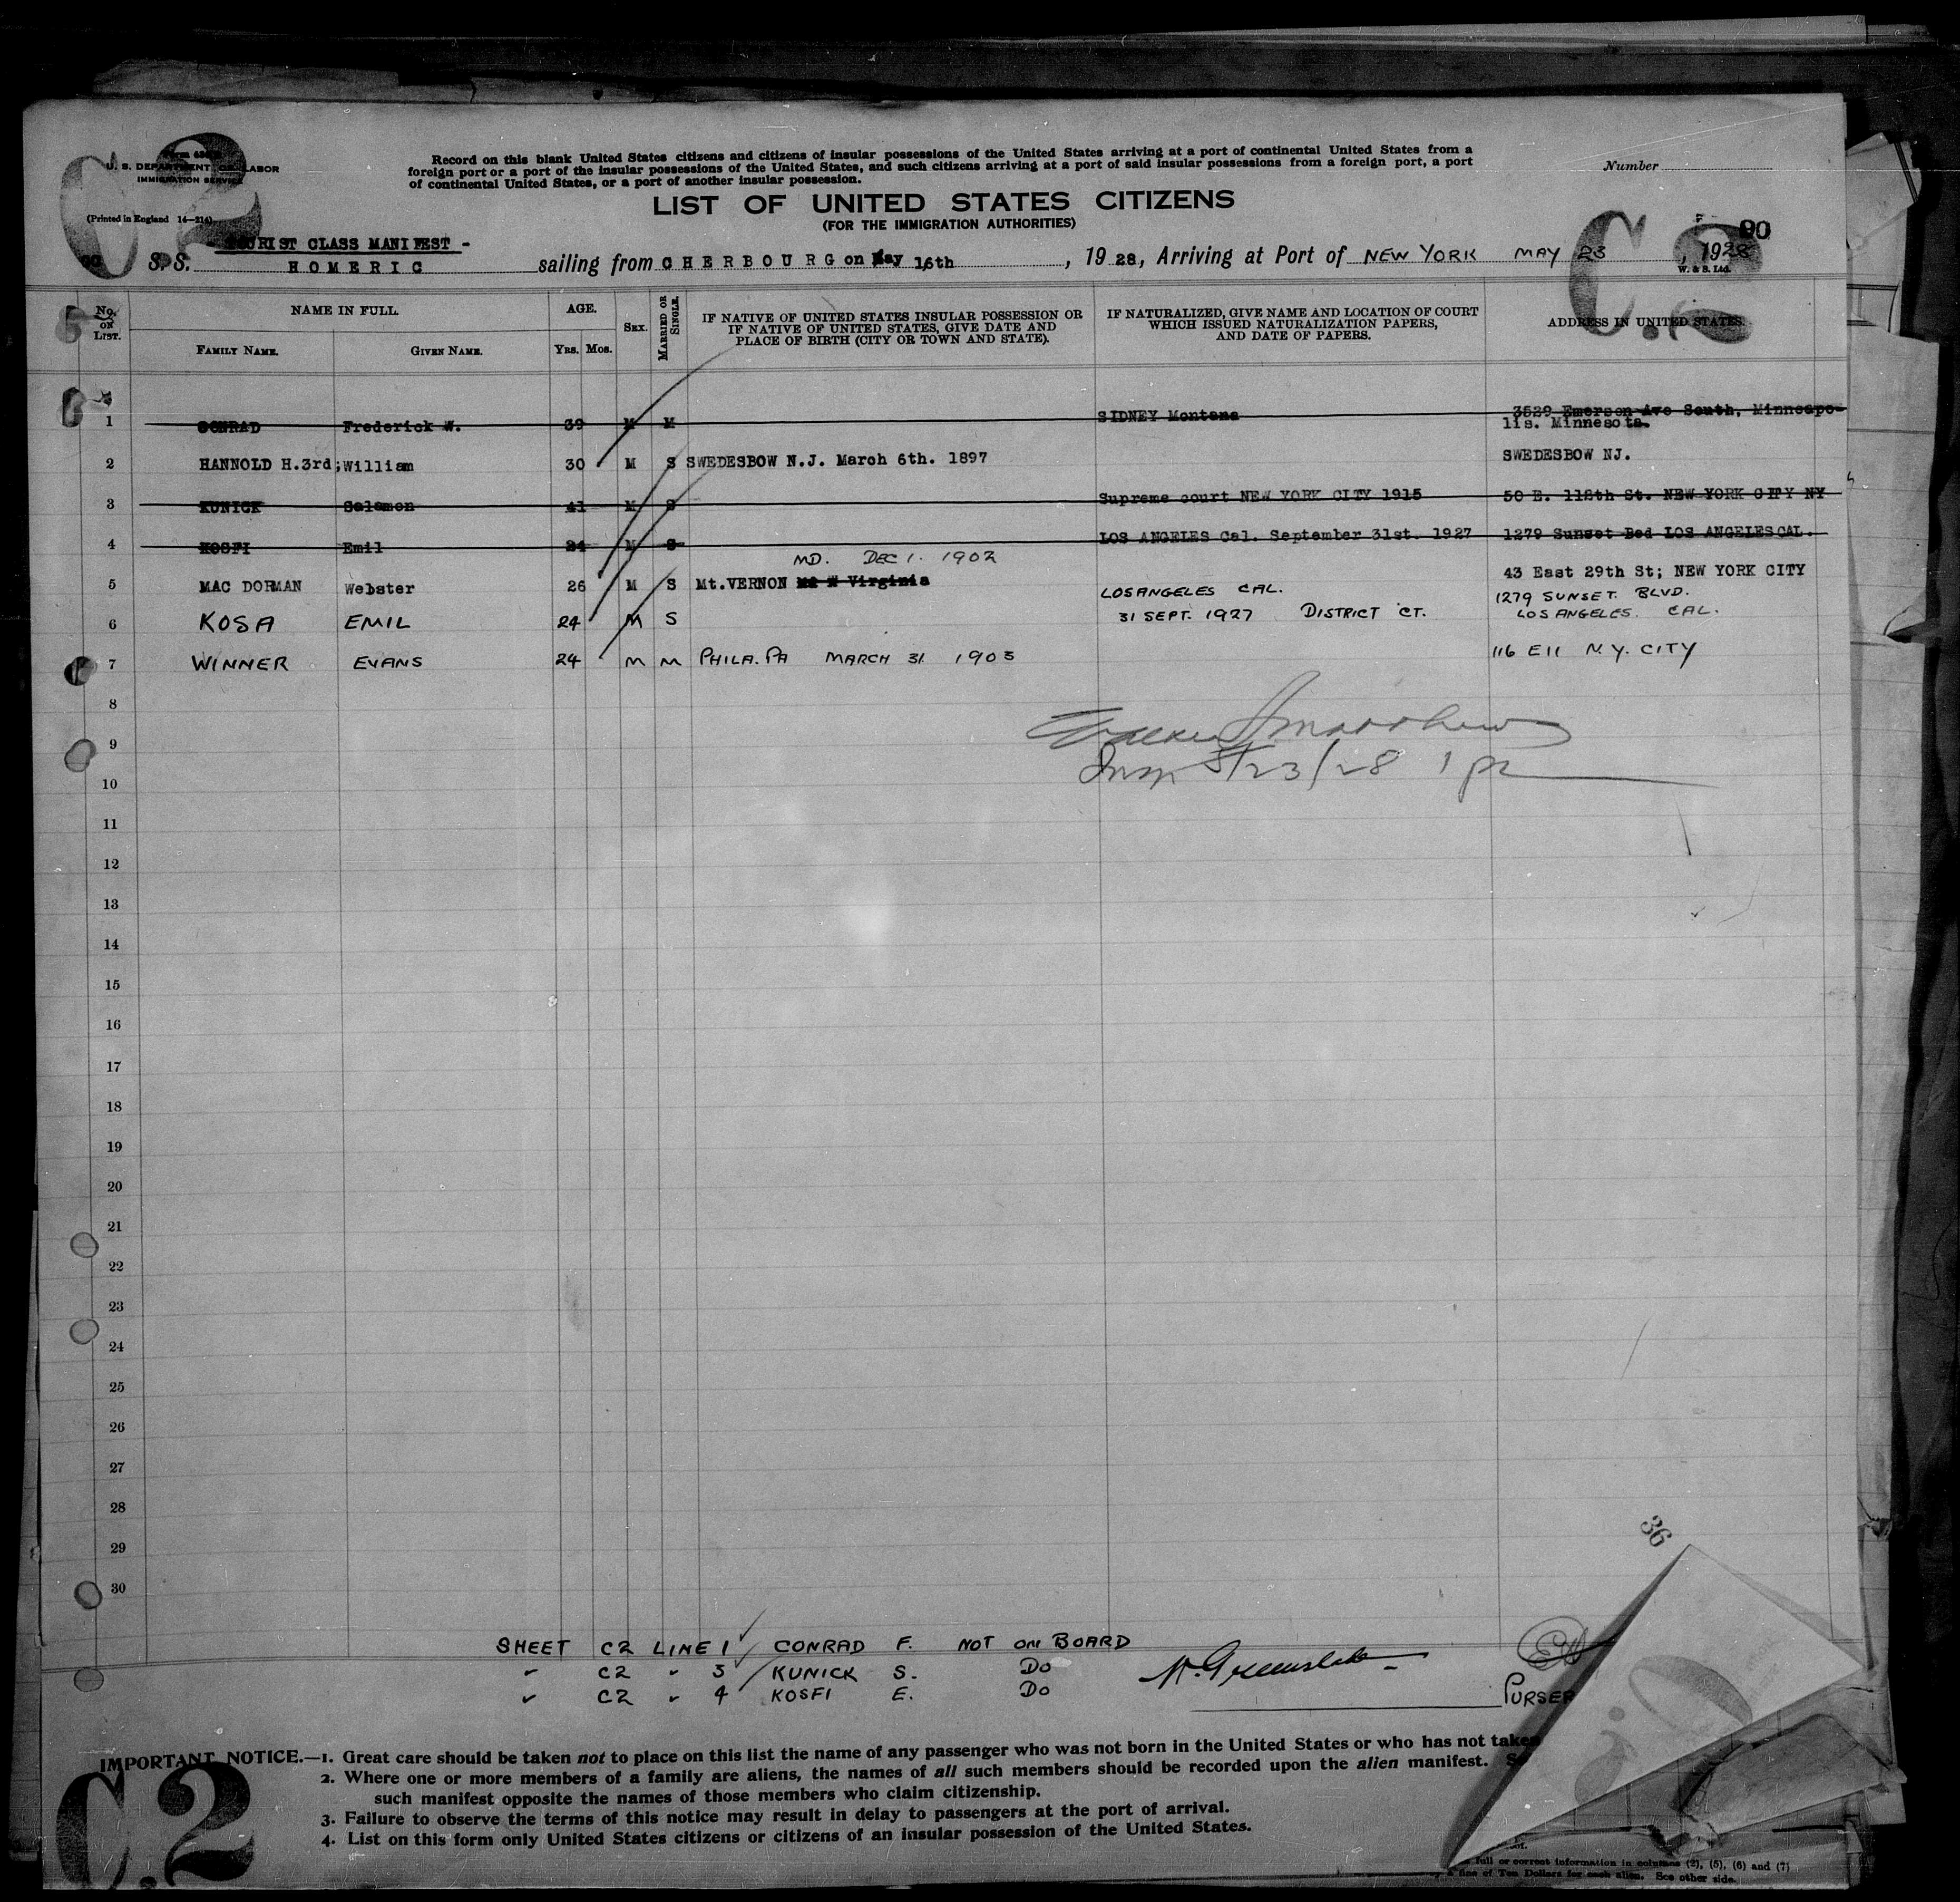 C2
U. S. DEPARTMENT OF LABOR
IMMIGRATION SERVICE
(Printed in England 14—214)
Record on this blank United States citizens and citizens of insular possessions of the United States arriving at a port of continental United States from a
foreign port or a port of the insular possessions of the United States, and such citizens arriving at a port of said insular possessions from a foreign port, a port
of continental United States, or a port of another insular possession.
Number
LIST OF UNITED STATES CITIZENS
(FOR THE IMMIGRATION AUTHORITIES)
C.2
90
- TOURIST CLASS MANIFEST -
S.S. HOMERIC sailing from CHERBOURG on May 16th, 1928, Arriving at Port of NEW YORK MAY 23, 1928
W. & S. Ltd.
No. ON LIST.
NAME IN FULL.
FAMILY NAME. GIVEN NAME.
AGE.
YRS. MOS.
SEX.
MARRIED OR SINGLE.
IF NATIVE OF UNITED STATES INSULAR POSSESSION OR
IF NATIVE OF UNITED STATES, GIVE DATE AND
PLACE OF BIRTH (CITY OR TOWN AND STATE).
IF NATURALIZED, GIVE NAME AND LOCATION OF COURT
WHICH ISSUED NATURALIZATION PAPERS,
AND DATE OF PAPERS.
ADDRESS IN UNITED STATES.
1 CONRAD Frederick W. 39 M M SIDNEY Montana 3529 Emerson Ave South, Minneapo-
lis. Minnesota.
2 HANNOLD H.3rd; William 30 M S SWEDESBOW N.J. March 6th. 1897 SWEDESBOW NJ.
3 KUNICK Salomon 41 M S Supreme court NEW YORK CITY 1915 50 E. 118th St. NEW YORK CITY NY
4 KOSFI Emil 24 M S LOS ANGELES Cal. September 31st. 1927 1279 Sunset Bed LOS ANGELES CAL.
MD. DEC 1. 1902
5 MAC DORMAN Webster 26 M S Mt.VERNON Md W Virginia 43 East 29th St; NEW YORK CITY
LOS ANGELES CAL. 1279 SUNSET BLVD.
6 KOSA EMIL 24 M S 31 SEPT. 1927 DISTRICT CT. LOS ANGELES. CAL.
7 WINNER EVANS 24 M M PHILA. PA MARCH 31 1903 116 E11 N.Y. CITY
8
9
Insp 5/23/28
10
11
12
13
14
15
16
17
18
19
20
21
22
23
24
25
26
27
28
29
30
36
SHEET C2 LINE 1 CONRAD F. NOT ON BOARD
" C2 " 3 KUNICK S. DO
" C2 " 4 KOSFI E. DO
PURSER
IMPORTANT NOTICE.—1. Great care should be taken not to place on this list the name of any passenger who was not born in the United States or who has not taken
2. Where one or more members of a family are aliens, the names of all such members should be recorded upon the alien manifest.
such manifest opposite the names of those members who claim citizenship.
3. Failure to observe the terms of this notice may result in delay to passengers at the port of arrival.
4. List on this form only United States citizens or citizens of an insular possession of the United States.
C.2
full or correct information in columns (2), (5), (6) and (7)
a fine of Ten Dollars for each alien. See other side.